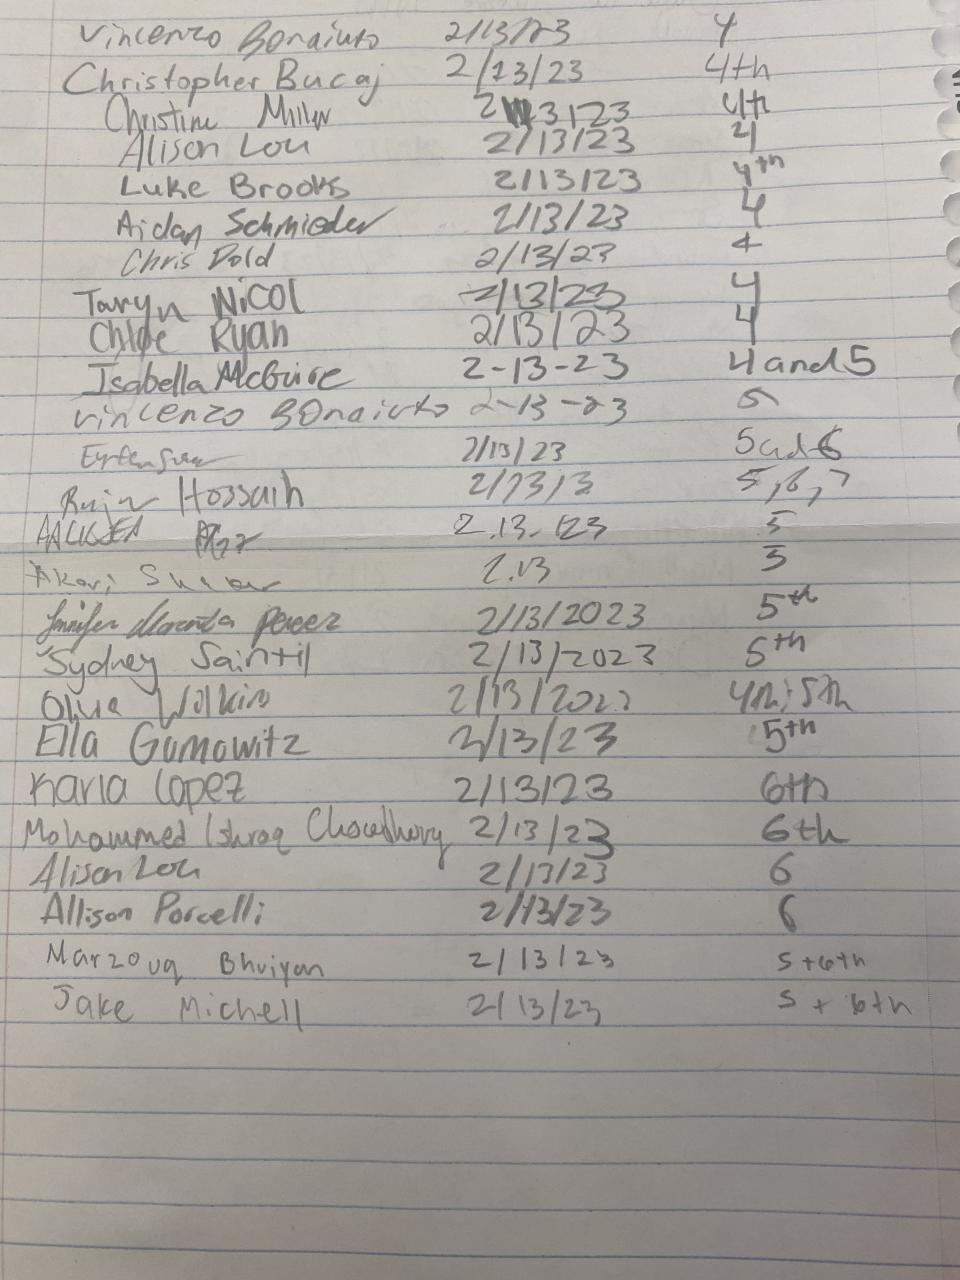 Vincenzo Bonaiuto 2/13/23 4
Christopher Bucaj 2/13/23 4th
Christine Miller 2/13/23 4th
Alison Lou 2/13/23 4
Luke Brooks 2/13/23 4th
Aidan Schmieder 2/13/23 4
Chris Dold 2/13/23 4
Taryn Nicol 2/13/23 4
Chloe Ryan 2/13/23 4
Isabella McGuire 2-13-23 4 and 5
Vincenzo Bonaiuto 2-13-23 5
2/13/23 5 and 6
Hossain 2/13/3 5,6,7
2.13.23 5
Akari 2.13 5
Jennifer Morenta Perez 2/13/2023 5th
Sydney Saintil 2/13/2023 5th
Olivia Wilkins 2/13/2023 4th; 5th
Ella Gomowitz 2/13/23 5th
Karla Lopez 2/13/23 6th
Mohammed Ishraq Chowdhury 2/13/23 6th
Alison Lou 2/13/23 6
Allison Porcelli 2/13/23 6
Marzouq Bhuiyan 2/13/23 5+6th
Jake Michell 2/13/23 5 + 6th